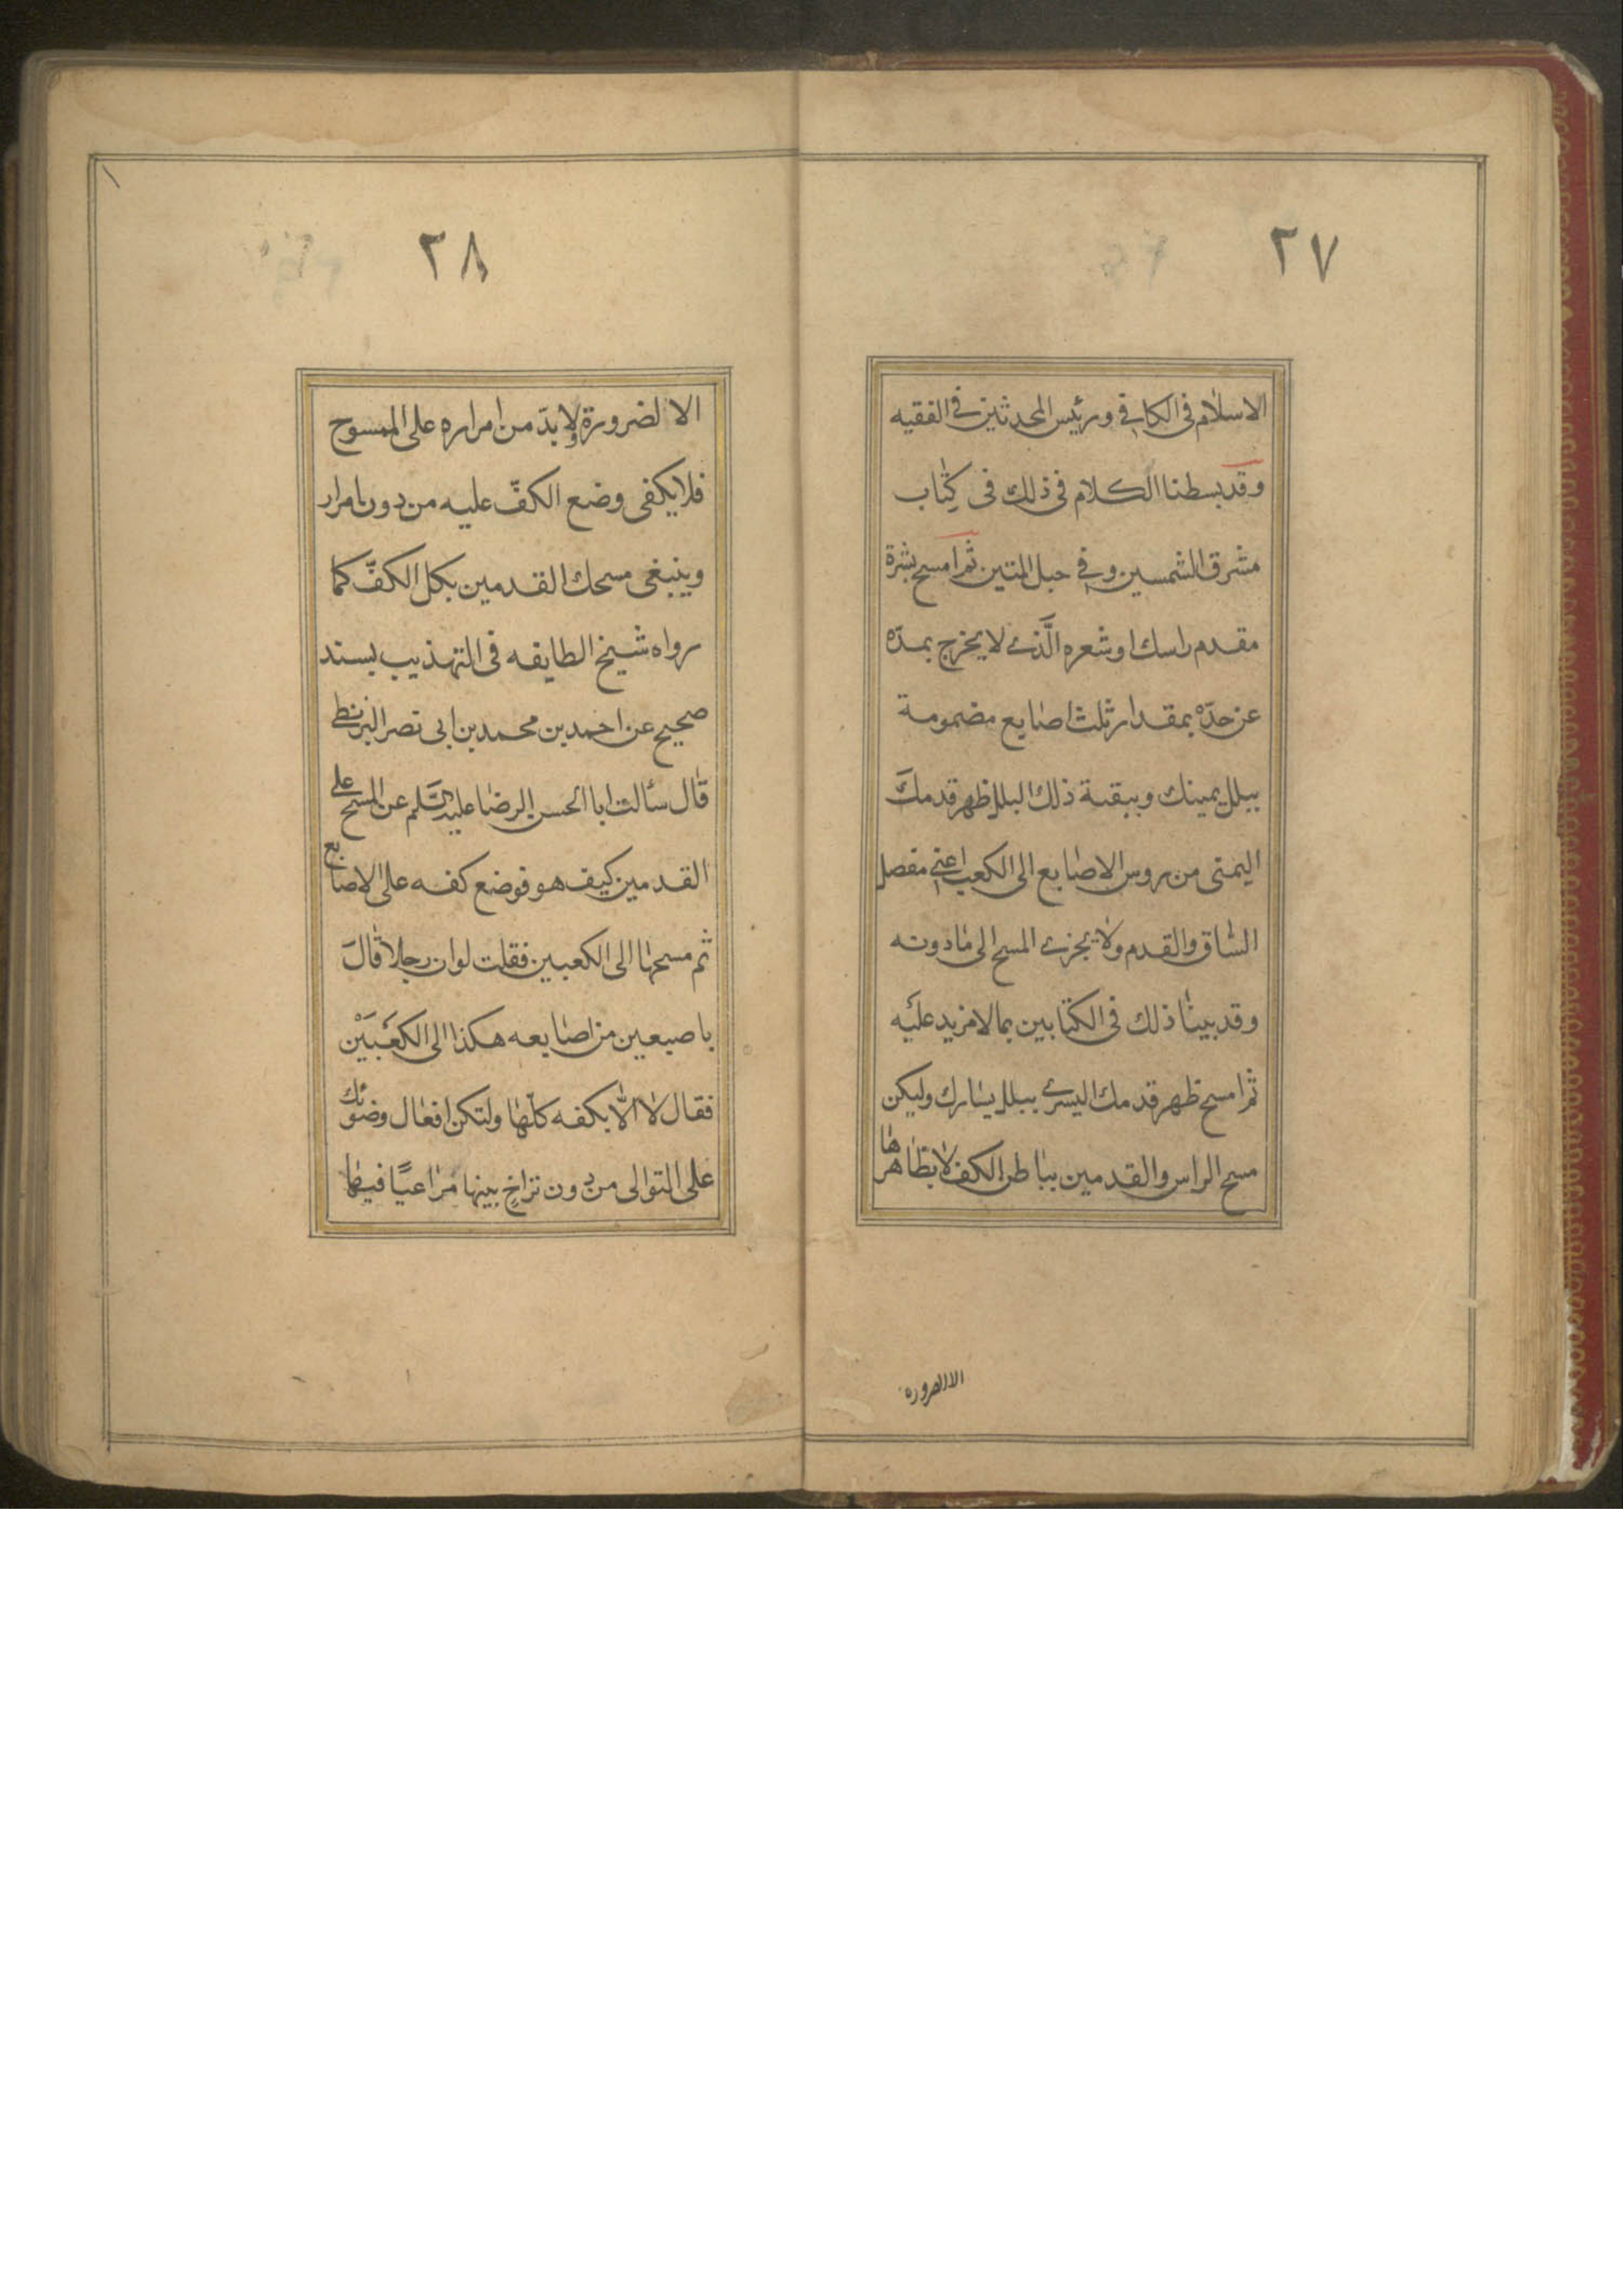 ٢٧
الاسلام فى الكافي ورئيس المحدثين في الفقيه
وقد بسطنا الكلام فى ذلك فى كتاب
مشرق الشمسين وفي حبل المتين ثم امسح بشرة
مقدم راسك او شعره الَّذي لا يخرج بمدّه
عن حدّه بمقدار ثلث اصابع مضمومة
ببلل يمينك وببقية ذلك البلل ظهر قدمك
اليمنى من روس الاصابع الى الكعب اعني مفصل
الساق والقدم ولا يجزي المسح الى ما دونه
وقد بينا ذلك فى الكتابين بما لا مزيد عليه
ثم امسح ظهر قدمك اليسرى ببلل يسارك وليكن
مسح الراس والقدمين بباطن الكف لا بظاهرها
الا لضرورة
٢٨
الا لضرورة ولا بدّ من امراره على الممسوح
فلا يكفى وضع الكفّ عليه من دون امرار
وينبغى مسحك القدمين بكل الكفّ كما
رواه شيخ الطايفه فى التهذيب بسند
صحيح عن احمد بن محمد بن ابى نصر البزنطي
قال سئالت ابا الحسن الرضا عليه السَّلم عن المسح على
القدمين كيف هو فوضع كفه على الاصابع
ثم مسحها الى الكعبين فقلت لو ان رجلا قالَ
باصبعين من اصابعه هكذا الى الكعَبَيْن
فقال لا الّا بكفه كلّها ولتكن افعال وضوئك
على التوالى من دون تراخٍ بينها مراعيًا فيها